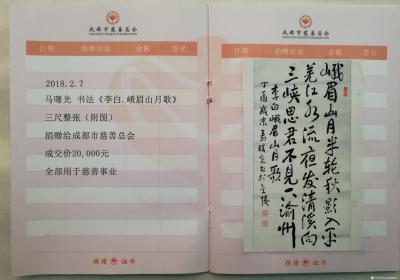 成都市慈善总会
日期 捐赠用途 金额 签名
2018.2.7
马曙光 书法《李白.峨眉山月歌》
三尺整张（附图）
捐赠给成都市慈善总会
成交价20,000元
全部用于慈善事业
捐赠 证书
成都市慈善总会
日期 捐赠用途 金额 签名
峨眉山月半轮秋影入平
羌江水流夜发清溪向
三峡思君不见下渝州
李白峨眉山月歌
捐赠 证书